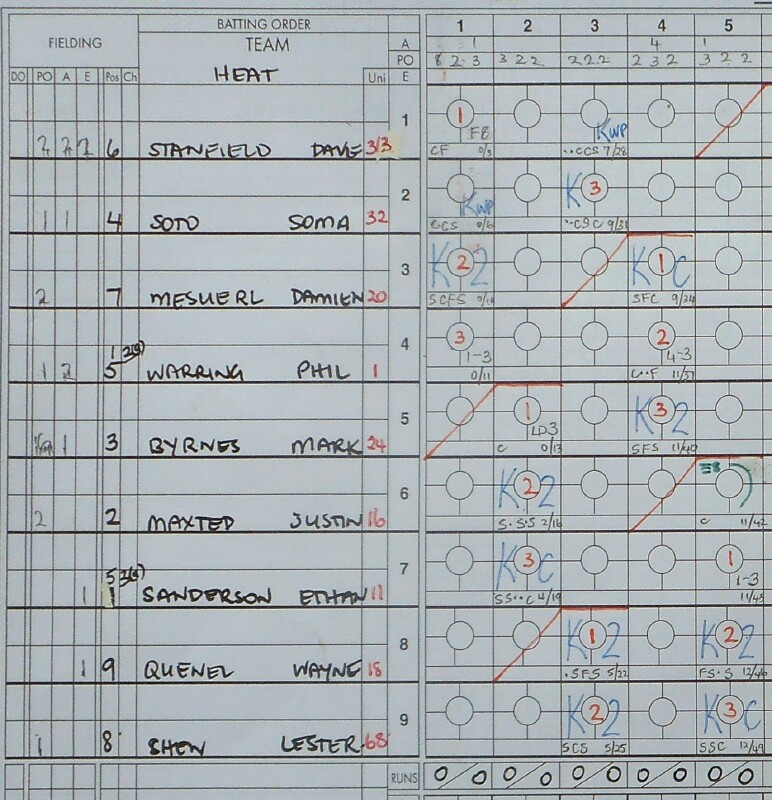 FIELDING BATTING ORDER 1 2 3 4 5
TEAM A 1 4 1
HEAT PO 8 2 3 3 2 2 2 2 2 2 3 2 3 2 2
DO PO A E Pos Ch Uni E 1
1
1 F8 KWP
2 2 2 6 STANFIELD DAVE 313 CF 0/3 ··CCS 7/28
2
KWP K 3
1 1 4 SOTO SOMA 32 CCS 0/6 ··CSC 9/31
3
K 2 2 K 1 C
2 7 SCFS SFC 9/34
DAMIEN 20
1 2(9) 4
3 1-3 2 4-3
1 2 5 WARRING PHIL 1 0/11 C··F 11/37
5
1 LD3 K 3 2
1 3 BYRNES MARK 24 C 0/13 SFS 11/40
6
K 2 2 E8
2 2 MAXTED JUSTIN 16 S·S·S 2/16 C 11/42
5 7
K 3 C 1 1-3
1 1 SANDERSON ETHAN 11 SS··C 4/19 11/43
8
K 1 2 K 2 2
1 9 QUENEL WAYNE 18 ·SFS 5/22 FS·S 12/46
9
K 2 2 K 3 C
1 8 SHEW LESTER 68 SCS 5/25 SSC 12/49
RUNS 0/0 0/0 0/0 0/0 0/0